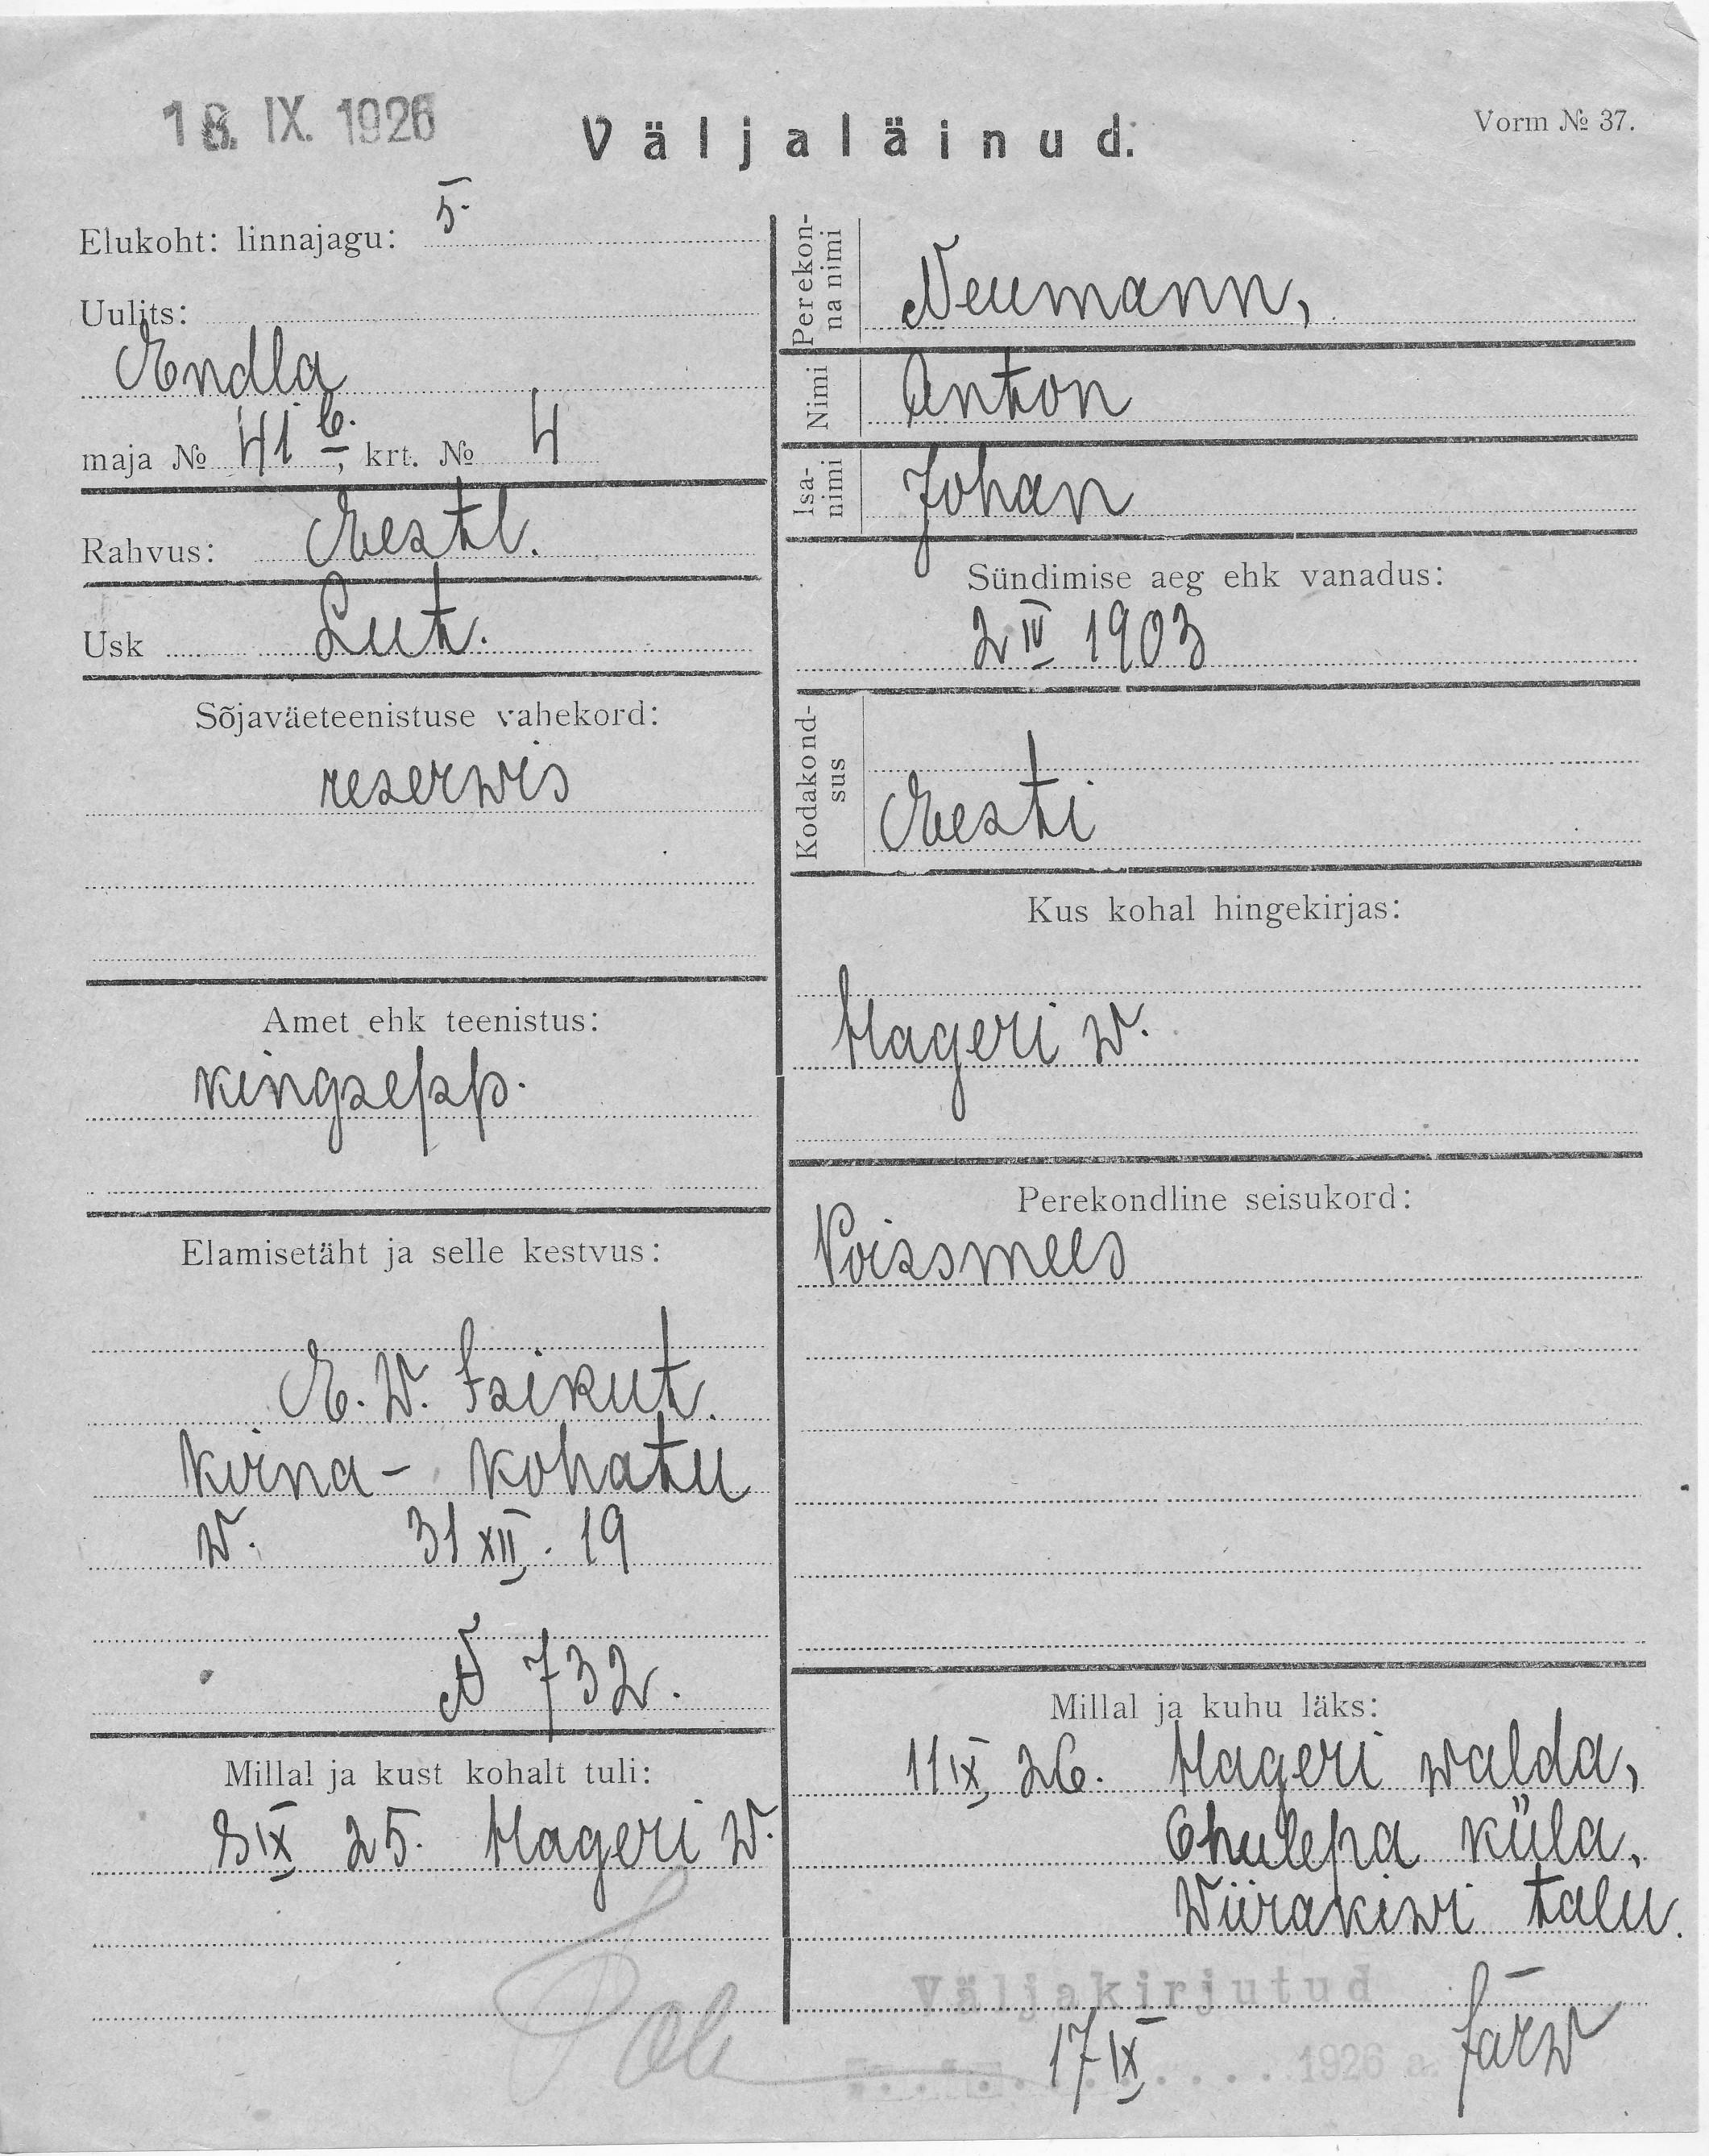 18. IX. 1926
Väljaläinud.
Vorm № 37.
Elukoht: linnajagu: 5.
Uulits:
Endla
maja № 41 b., krt. № 4
Rahvus: Eestl.
Usk Lut.
Sõjaväeteenistuse vahekord:
reserwis
Amet ehk teenistus:
kingsepp.
Elamisetäht ja selle kestvus:
E. W. Isikut.
Kirna- Kohatu
w. 31 XII. 19
N 732.
Millal ja kust kohalt tuli:
8 IX 25. Hageri w.
Perekonna nimi
Neumann,
Nimi
Anton
Isanimi
Johan
Sündimise aeg ehk vanadus:
2 IV 1903
Kodakondsus
Eesti
Kus kohal hingekirjas:
Hageri w.
Perekondline seisukord:
Poissmees
Millal ja kuhu läks:
11 IX 26. Hageri walda,
Ohulepa küla,
Wiirakiwi talu.
Väljakirjutud
17 IX 1926 a.